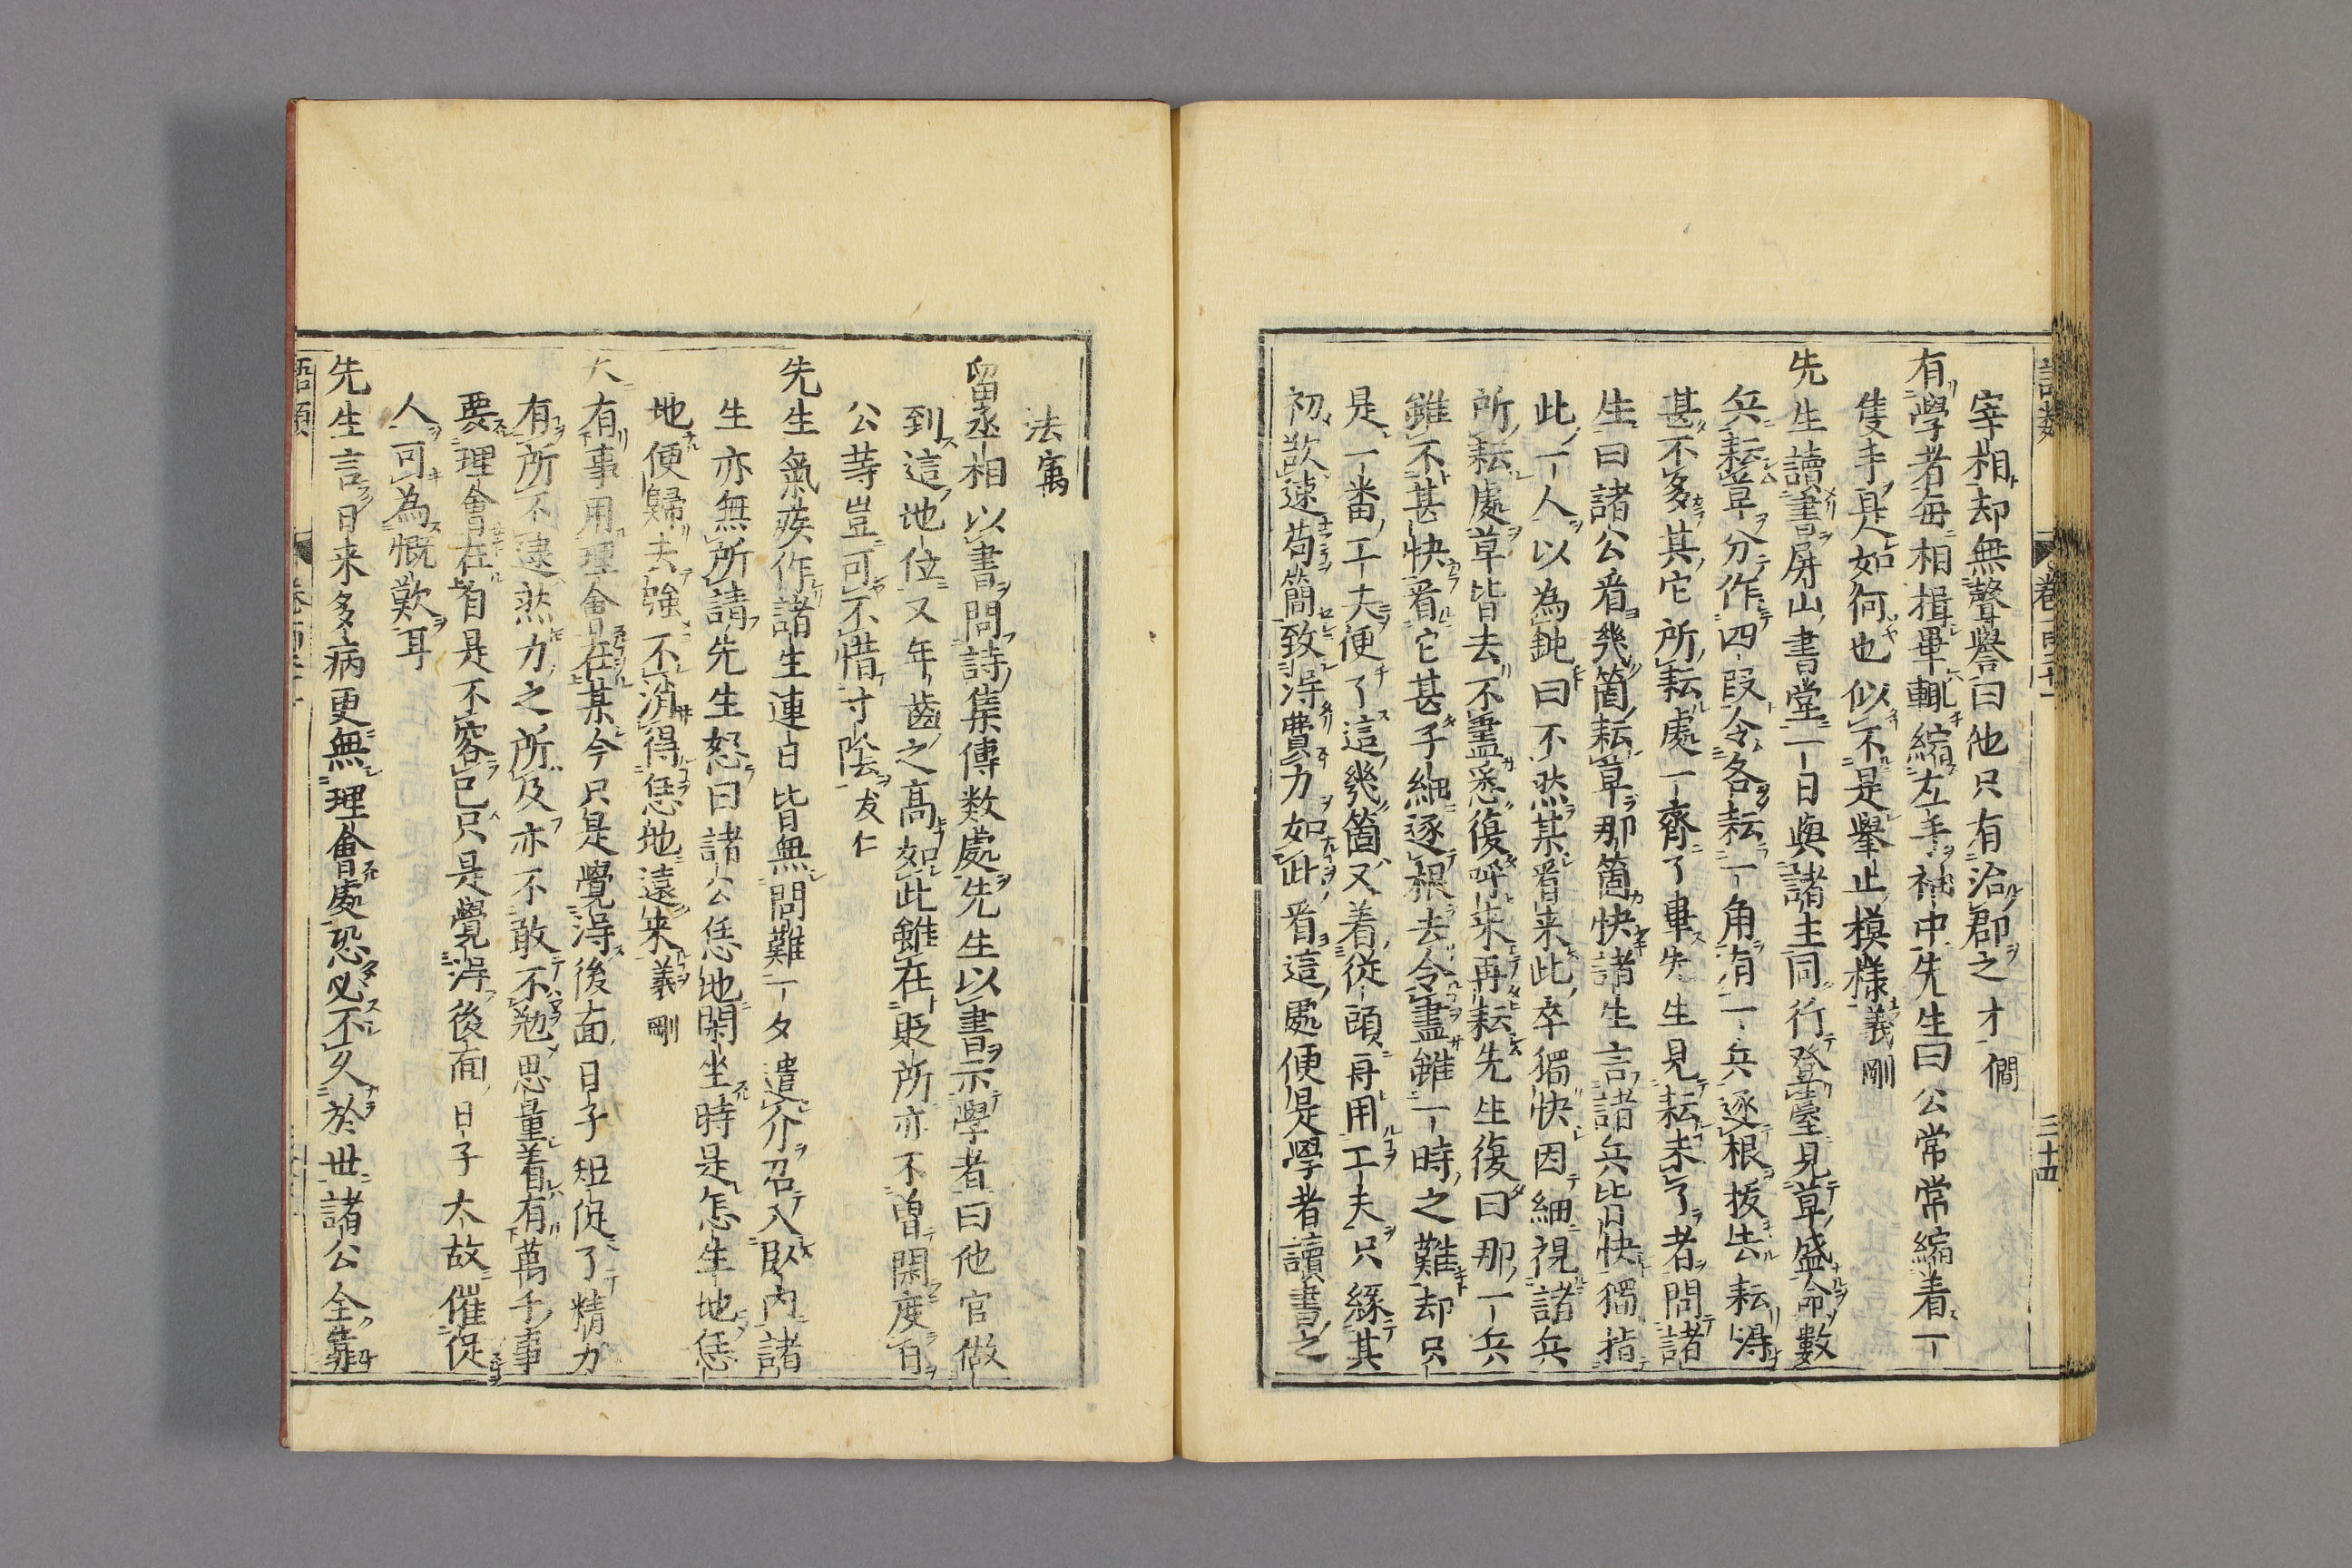 語類
卷一百二十一
三十五
宰相却無聲譽曰他只有治郡之才 僩
有學者每相揖畢輒縮左手袖中先生曰公常常縮着一
隻手是如何也似不是舉止模樣 義剛
先生讀書屏山書堂一日與諸生同行登臺見草盛命數
兵耘草分作四段令各耘一角有一兵逐根拔去耘得
甚不多其它所耘處一齊了畢先生見耘未了者問諸
生曰諸公看幾箇耘草那箇快諸生言諸兵皆快獨指
此一人以為鈍曰不然某看来此卒獨快因細視諸兵
所耘處草皆去不盡悉復呼来再耘先生復曰那一兵
雖不甚快看它甚子細逐根去令盡雖一時之難却只
是一番工夫便了這幾箇又着從頭再用工夫只緣其
初欲速苟簡致得費力如此看這處便是學者讀書之
法㝢
留丞相以書問詩集傳数處先生以書示學者曰他官做
到這地位又年齒之高如此雖在貶所亦不曾閑度日
公等豈可不惜寸陰 友仁
先生氣疾作諸生連日皆無問難一夕遣介召入臥內諸
生亦無所請先生怒曰諸公恁地閑坐時是怎生地恁
地便歸去強不消得恁地遠来 義剛
大有事用理會在某今只是覺得後面日子短促了精力
有所不逮然力之所及亦不敢不勉思量着有萬千事
要理會在自是不容已只是覺得後面日子大故催促
人可為慨歎耳
先生言日来多病更無理會處恐必不久於世諸公全靠
語類